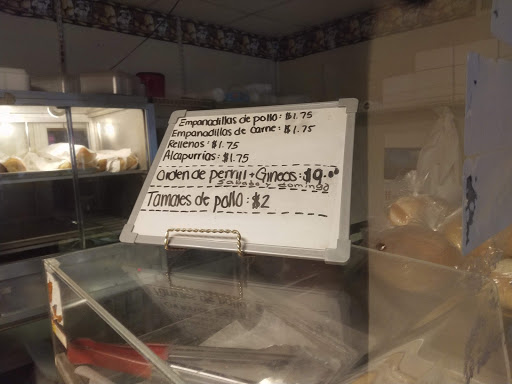 Empanadillas de pollo: $1.75
Empanadillas de carne: $1.75
Rellenos: $1.75
Alcapurrias: $1.75
Orden de pernil + Gineos: $9.00
sabado y domingo
Tamales de pollo: $2